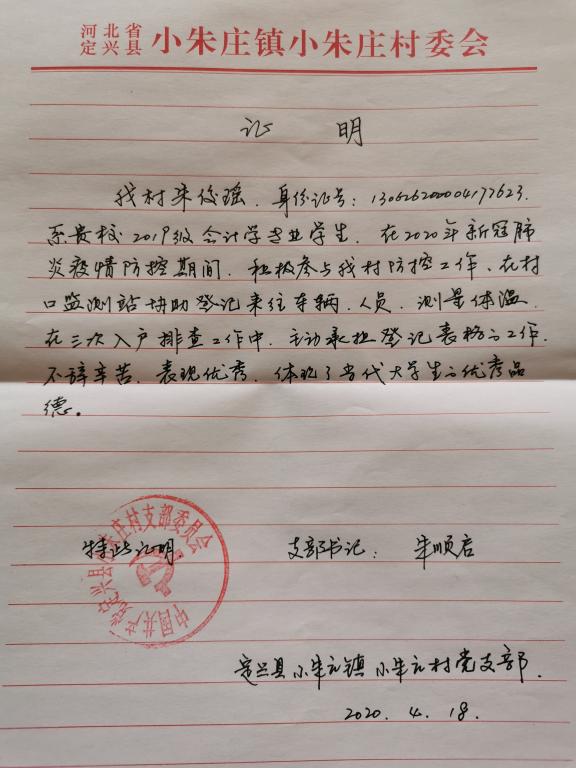 河北省
定兴县 小朱庄镇小朱庄村委会
证 明
我村朱俊瑶,身份证号:130626200004177623,
系贵校2019级会计学专业学生,在2020年新冠肺
炎疫情防控期间,积极参与我村防控工作、在村
口监测站协助登记来往车辆、人员,测量体温,
在三次入户排查工作中,主动承担登记表格的工作,
不辞辛苦,表现优秀,体现了当代大学生的优秀品
德。
特此证明 支部书记:朱顺启
中国共产党定兴县小朱庄村支部委员会
定兴县小朱庄镇小朱庄村党支部.
2020.4.18.